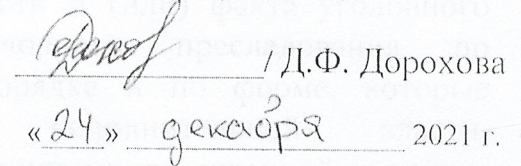 / Д.Ф. Дорохова
«24» декабря 2021 г.